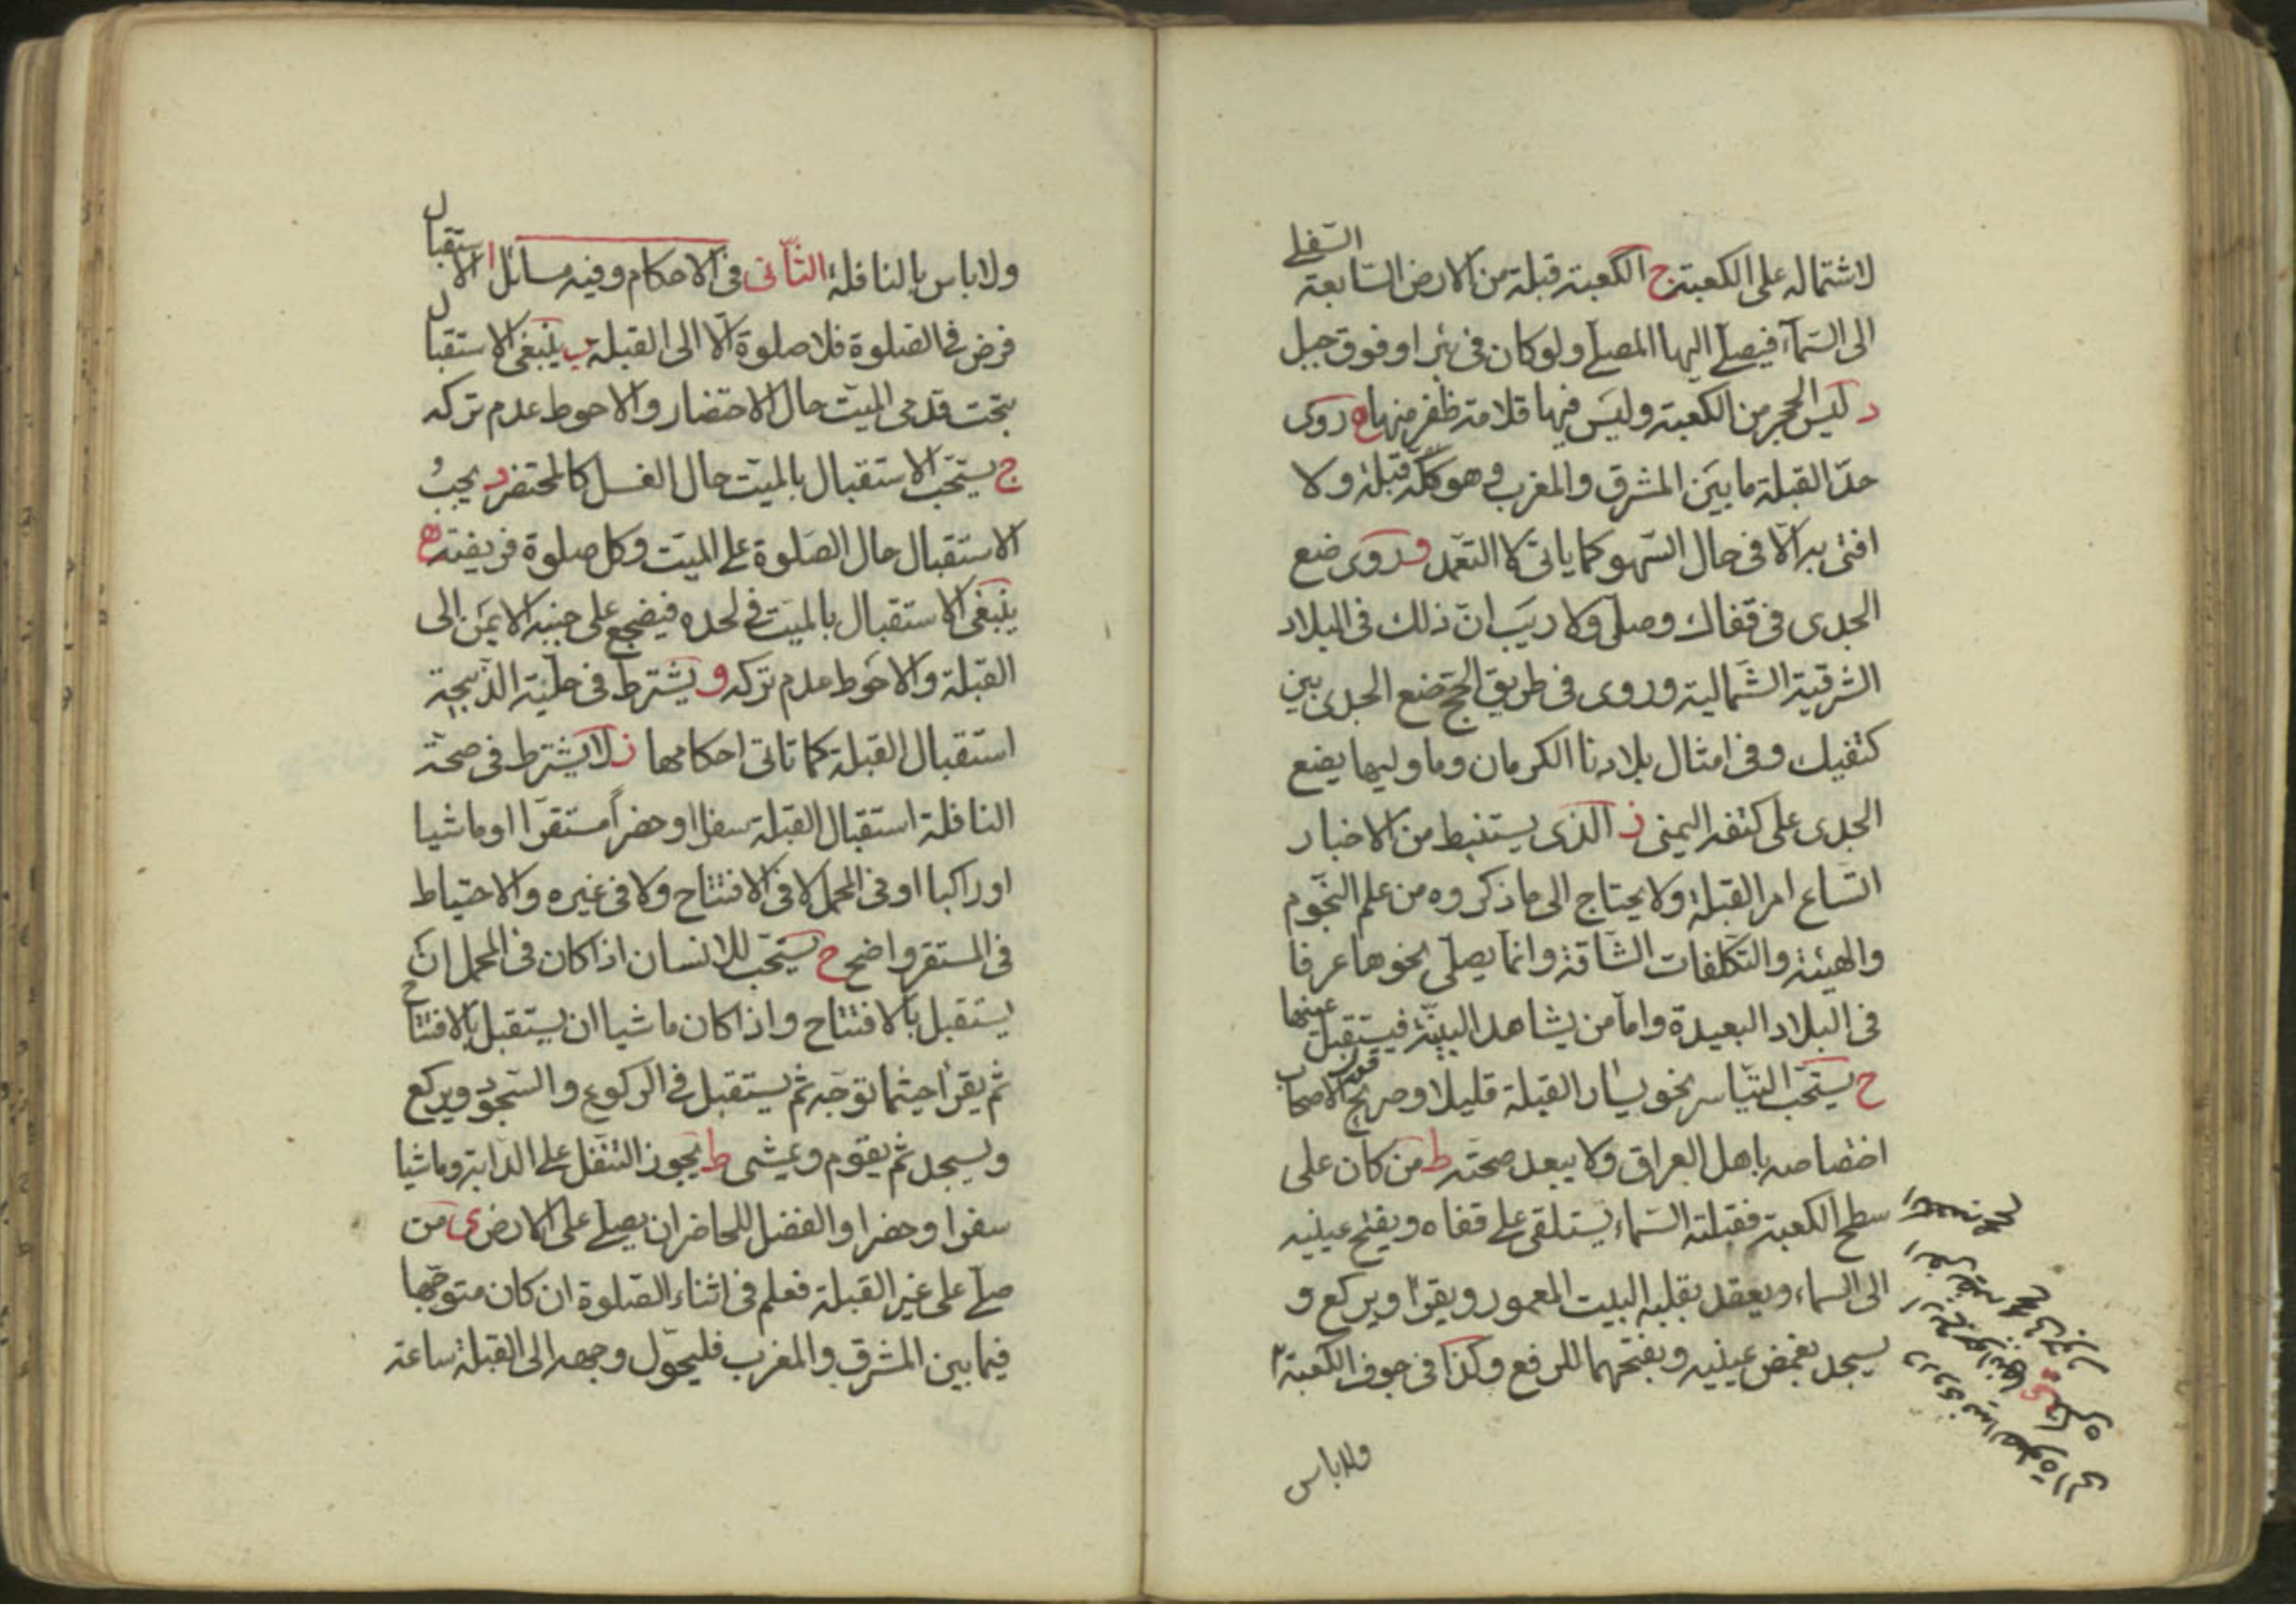 لاشتماله على الكعبة ج الكعبة قبلة من الارض السابعة السفلى
الى السمآء فيصلى اليها المصلى ولو كان فى بئر او فوق جبل
د ليس الحجر من الكعبة وليس فيها قلامة ظفر منها ه روى
حدّ القبلة ما بين المشرق والمغرب وهو كلّه قبلة ولا
افتى به الّا فى حال السّهو كما ياتى لا التعّمد و روى ضع
الجدى فى قفاك وصلّ ولا ريب انّ ذلك فى البلاد
الشرقية الشّمالية وروى فى طريق الحج ضع الجدى بين
كتفيك وفى امثال بلادنا الكرمان وما وليها يضع
الجدى على كتفه اليمنى ز الذى يستنبط من الاخبار
اتّساع امر القبلة ولا يحتاج الى ما ذكروه من علم النجوم
والهيئة والتكلفات الشّاقة وانما يصلّى نحوها عرفا
فى البلاد البعيدة وامّا من يشاهد البنيّة فيستقبل عينها
ح يستحّب التياسر نحو يسار القبلة قليلا وصريح قول الاصحاب
اختصاصه باهل العراق ولا يبعد صحته ط من كان على
سطح الكعبة فقبلته السّماء يستلقى على قفاه ويفتح عينيه
الى السماء ويعقد بقلبه البيت المعمور ويقرأ ويركع و
يسجد بغمض عينيه وبفتحهما للرفع وكذا فى جوف الكعبة
ولاباس
ولاباس بالنافلة الثّانى فى الاحكام وفيه مسائل ا الاستقبال
فرض فى الصلوة فلا صلوة الّا الى القبلة ب ينبغى الاستقبال
بتحت قدمى الميّت حال الاحتضار والاحوط عدم تركه
ج يستحّب الاستقبال بالميّت حال الغسل كالمحتضر د يجب
الاستقبال حال الصّلوة على الميّت وكل صلوة فريضة ه
ينبغى الاستقبال بالميّت فى لحده فيضجع على جنبه الايمن الى
القبلة والاحوط عدم تركه و يشترط فى حلّية الذّبيحة
استقبال القبلة كما تاتى احكامها ز لا يشترط فى صحّة
النافلة استقبال القبلة سفرا او حضراً مستقرّا او ماشيا
او راكبا او فى المحمل لا فى الافتتاح ولا فى غيره والاحتياط
فى المستقر واضح ح يستحّب للانسان اذا كان فى المحمل ان
يستقبل بالافتتاح واذا كان ماشيا ان يستقبل بالافتتاح
ثم يقرأ حيثما توجّه ثم يستقبل فى الركوع والسّجود ويركع
ويسجد ثم يقوم ويمشى ط يجوز التنفّل على الدّابة وماشيا
سفرا وحضرا والفضل للحاضر ان يصلى على الارض ى من
صلّى على غير القبلة فعلم فى اثناء الصّلوة ان كان متوجّها
فيما بين المشرق والمغرب فليحوّل وجهه الى القبلة ساعة